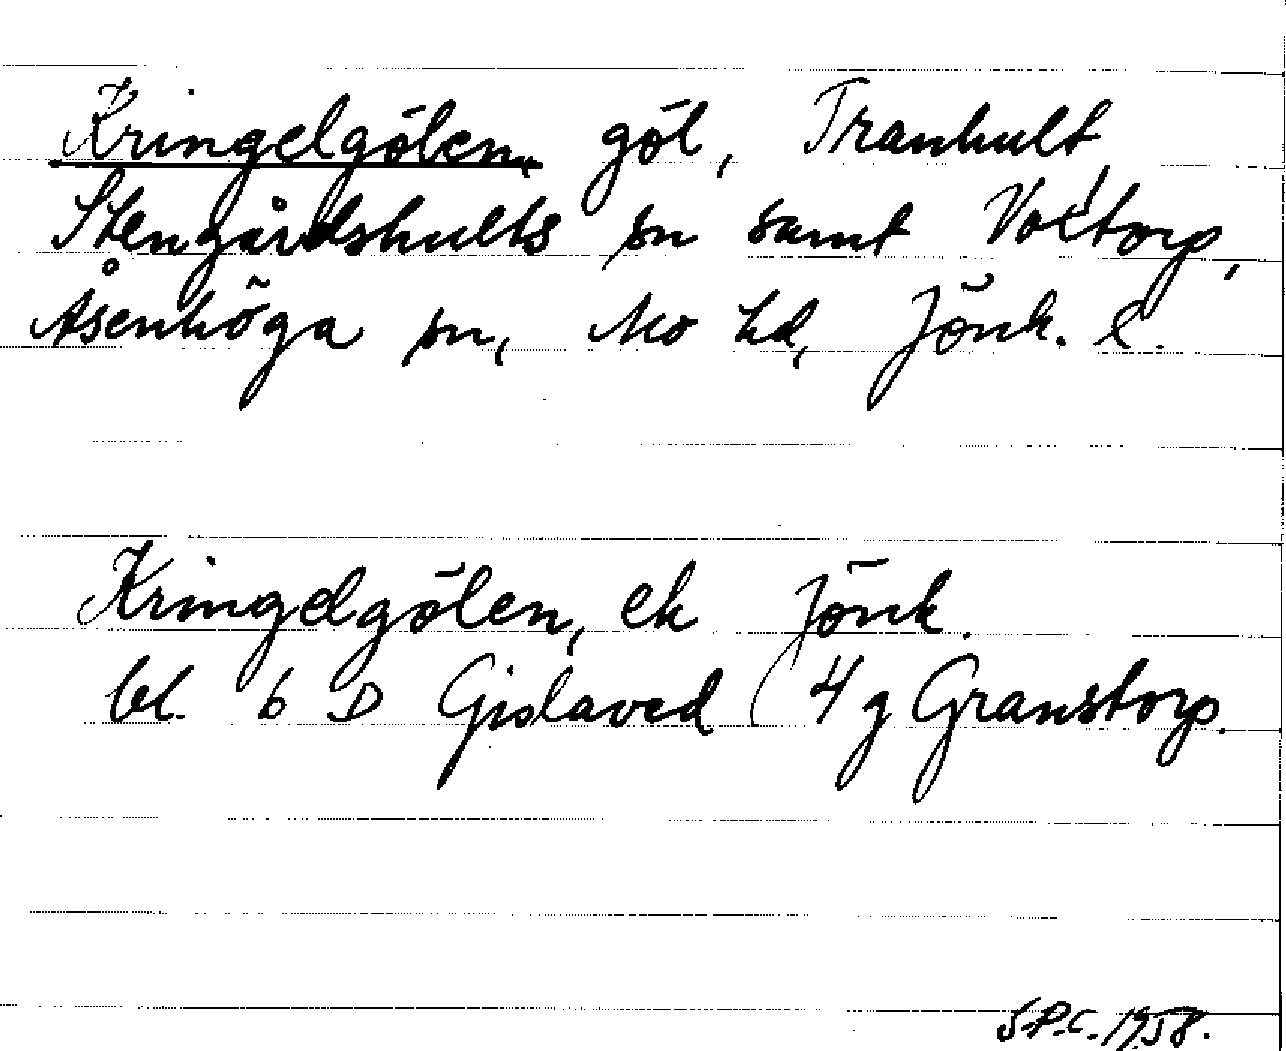 Kringelgölen, göl, Tranhult,
Stengårdshults sn samt Voxtorp,
Åsenhöga sn, Mo hd, Jönk. l.
Kringelgölen, ek Jönk.
bl. 6 D Gislaved (4 g Granstorp.
S.P.C. 1958.